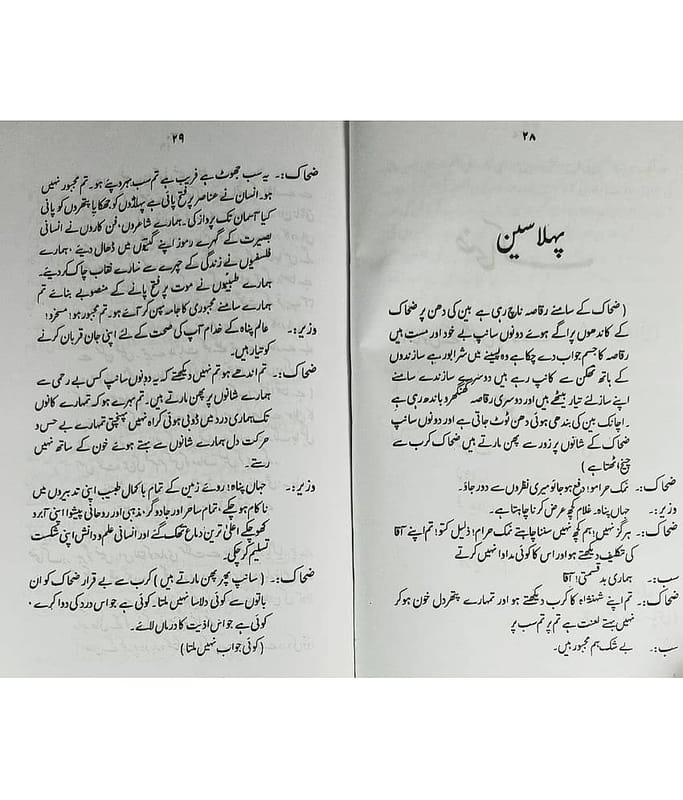 ۲۸
پہلا سین
( ضحاک کے سامنے رقاصہ ناچ رہی ہے بین کی دھن پر ضحاک
کے کاندھوں پر اگے ہوئے دونوں سانپ بے خود اور مست ہیں
رقاصہ کا جسم جواب دے چکا ہے وہ پسینے میں شرابور ہے سازندوں
کے ہاتھ تھکن سے کانپ رہے ہیں دوسرے سازندے سامنے
اپنے ساز لئے تیار بیٹھے ہیں اور دوسری رقاصہ گھنگھرو باندھ رہی ہے
۔ اچانک بین کی بندھی ہوئی دھن ٹوٹ جاتی ہے اور دونوں سانپ
ضحاک کے شانوں پر زور سے پھن مارتے ہیں ضحاک کرب سے
چیخ اٹھتا ہے )
ضحاک :۔ نمک حرامو! دفع ہو جاؤ میری نظروں سے دور جاؤ۔
وزیر :۔ جہاں پناہ۔ غلام کچھ عرض کرنا چاہتا ہے۔
ضحاک :۔ ہرگز نہیں! ہم کچھ نہیں سننا چاہتے نمک حرام! ذلیل کتو! تم اپنے آقا
کی تکلیف دیکھتے ہو اور اس کا کوئی مداوا نہیں کرتے
سب :۔ ہماری بدقسمتی! آقا
ضحاک :۔ تم اپنے شہنشاہ کا کرب دیکھتے ہو اور تمہارے پتھر دل خون ہو کر
نہیں بہتے لعنت ہے تم پر تم سب پر
سب :۔ بے شک ہم مجبور ہیں۔
۲۹
ضحاک :۔ یہ سب جھوٹ ہے فریب ہے تم سب بہروپئے ہو۔ تم مجبور نہیں
ہو۔ انسان نے عناصر پر فتح پائی ہے پہاڑوں کو جھکایا پتھروں کو پانی
کیا آسمان تک پرواز کی۔ ہمارے شاعروں، فن کاروں نے انسانی
بصیرت کے گہرے رموز اپنے گیتوں میں ڈھال دیئے، ہمارے
فلسفیوں نے زندگی کے چہرے سے سارے نقاب چاک کر دیئے۔
ہمارے طبیبوں نے موت پر فتح پانے کے منصوبے بنائے تم
ہمارے سامنے مجبوری کا جامہ پہن کر آئے ہو۔ تم مجبور ہو! مسخرو!
وزیر :۔ عالم پناہ کے خدام آپ کی صحت کے لئے اپنی جان قربان کرنے
کو تیار ہیں۔
ضحاک :۔ تم اندھے ہو تم نہیں دیکھتے کہ یہ دونوں سانپ کس بے رحمی سے
ہمارے شانوں پر پھن مارتے ہیں۔ تم بہرے ہو کہ تمہارے کانوں
تک ہماری درد میں ڈوبی ہوئی کراہ نہیں پہنچتی تمہارے بے حس و
حرکت دل ہمارے شانوں سے بہتے ہوئے خون کے ساتھ نہیں
رستے۔
وزیر :۔ جہاں پناہ! روئے زمین کے تمام باکمال طبیب اپنی تدبیروں میں
ناکام ہو چکے، تمام ساحر اور جادوگر، مذہبی اور روحانی پیشوا اپنی آبرو
کھو چکے اعلیٰ ترین دماغ تھک گئے اور انسانی علم و دانش اپنی شکست
تسلیم کر چکی۔
ضحاک :۔ ( سانپ پھر پھن مارتے ہیں ) کرب سے بے قرار ضحاک کو ان
باتوں سے کوئی دلاسا نہیں ملتا۔ کوئی ہے جو اس درد کی دوا کرے۔
کوئی ہے جو اس اذیت کا درماں لائے۔
( کوئی جواب نہیں ملتا )